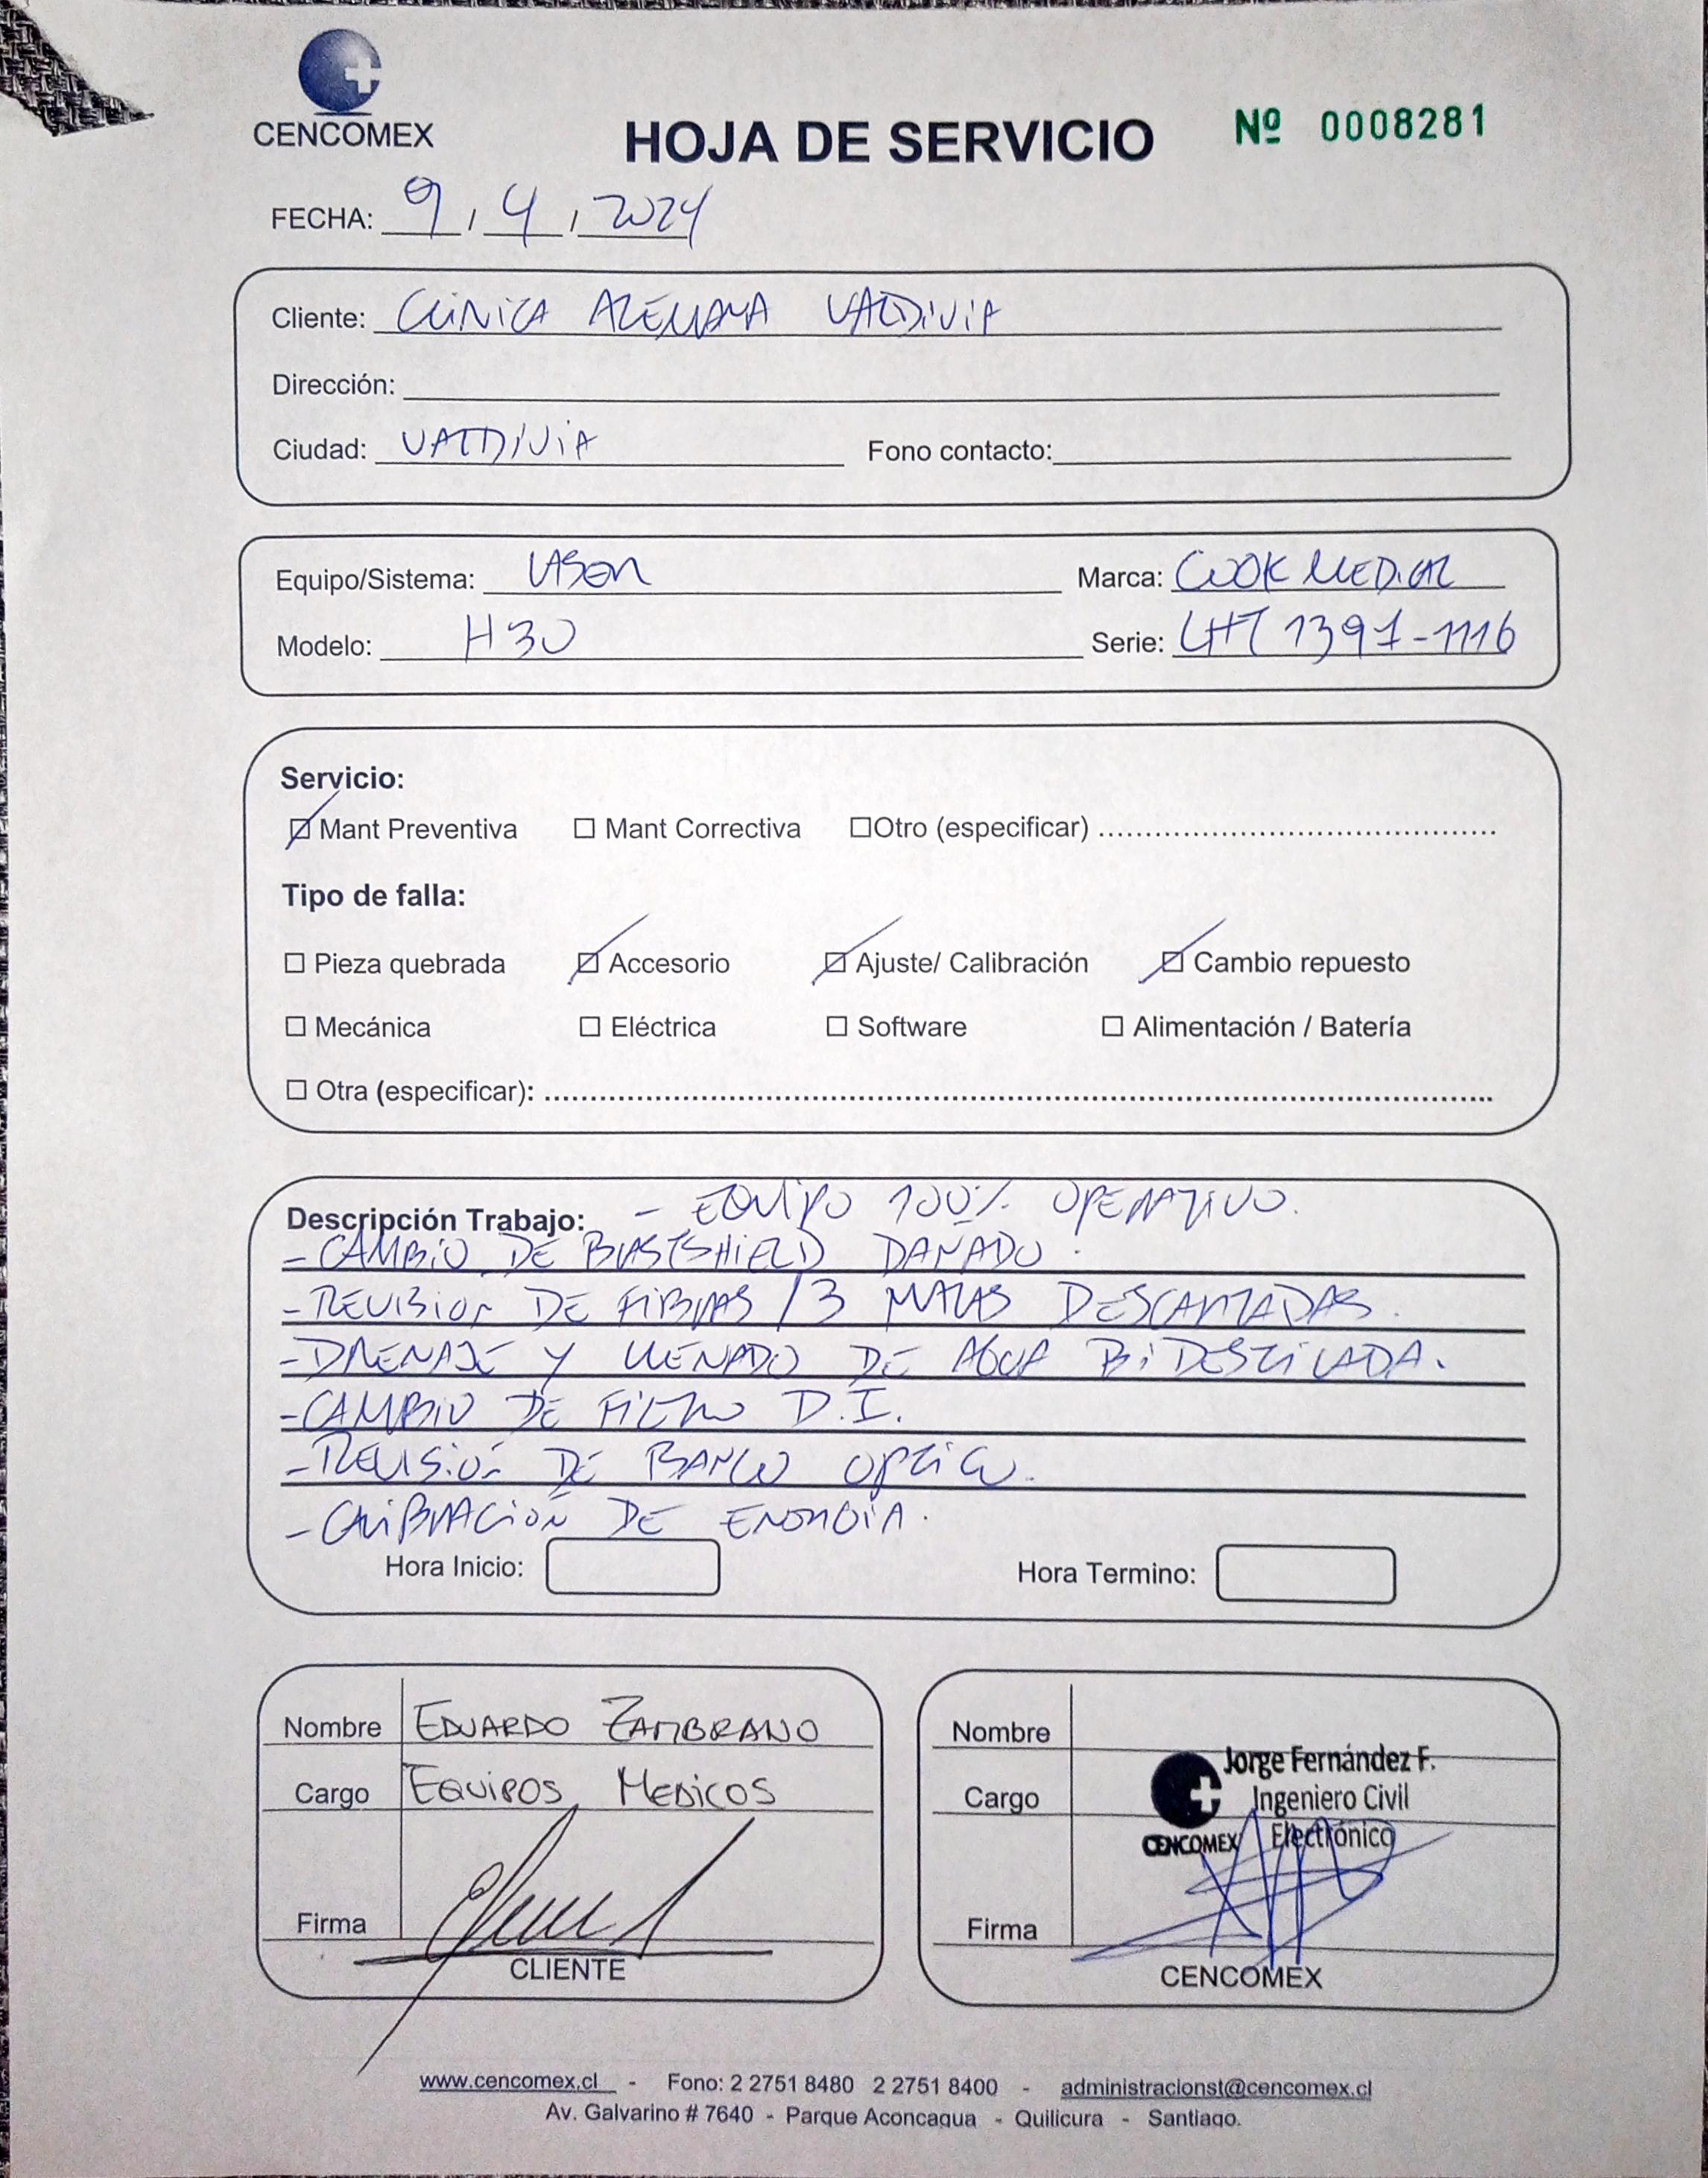 CENCOMEX
HOJA DE SERVICIO Nº 0008281
FECHA: 9 / 4 / 2024
Cliente: CLINICA ALEMANA VALDIVIA
Dirección:
Ciudad: VALDIVIA Fono contacto:
Equipo/Sistema: LASER Marca: COOK MEDICAL
Modelo: H30 Serie: LHT 1391-1116
Servicio:
Mant Preventiva Mant Correctiva Otro (especificar)
Tipo de falla:
Pieza quebrada Accesorio Ajuste/ Calibración Cambio repuesto
Mecánica Eléctrica Software Alimentación / Batería
Otra (especificar):
Descripción Trabajo: - EQUIPO 100% OPERATIVO.
- CAMBIO DE BLASTSHIELD DAÑADO.
- REVISION DE FIBRAS / 3 MALAS DESCARTADAS.
- DRENAJE Y LLENADO DE AGUA BIDESTILADA.
- CAMBIO DE FILTRO D.I.
- REVISIÓN DE BANCO OPTICO.
- CALIBRACIÓN DE ENERGÍA.
Hora Inicio: Hora Termino:
Nombre EDUARDO ZAMBRANO
Cargo EQUIPOS MEDICOS
Firma
CLIENTE
Nombre
Jorge Fernández F.
Cargo Ingeniero Civil
CENCOMEX Electrónico
Firma
CENCOMEX
www.cencomex.cl - Fono: 2 2751 8480 2 2751 8400 - administracionst@cencomex.cl
Av. Galvarino # 7640 - Parque Aconcagua - Quilicura - Santiago.